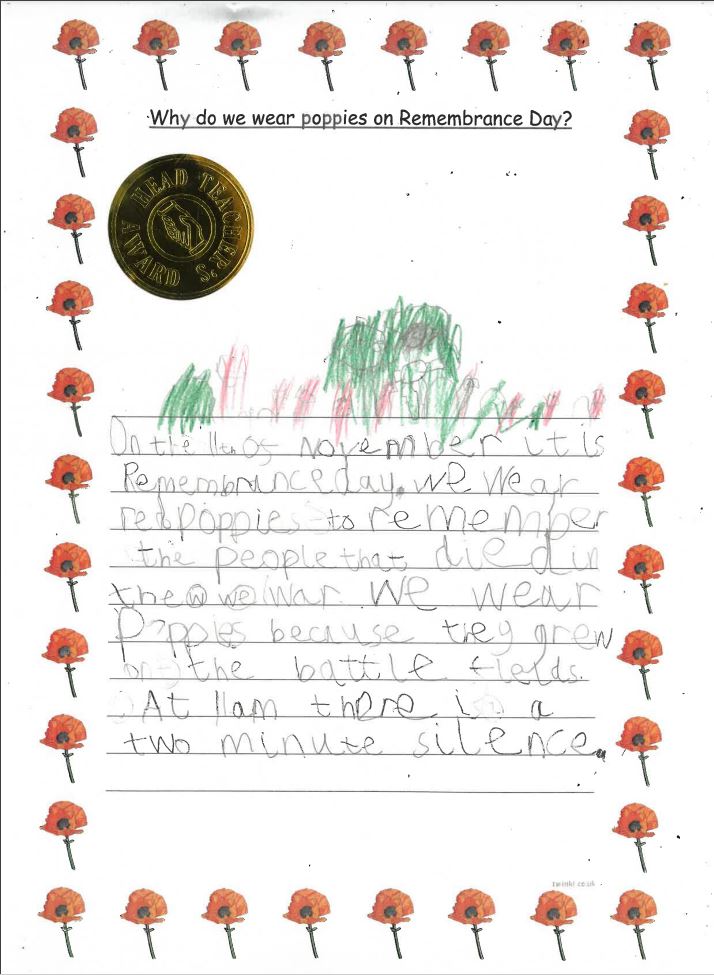 Why do we wear poppies on Remembrance Day?
HEAD TEACHER'S AWARD
On the 11th of november it is
Remembrance day. we wear
red poppies to remember
the people that died in
the war we wear
Poppies because they grew
on the battle fields.
At 11am there is a
two minute silence.
twinkl.co.uk